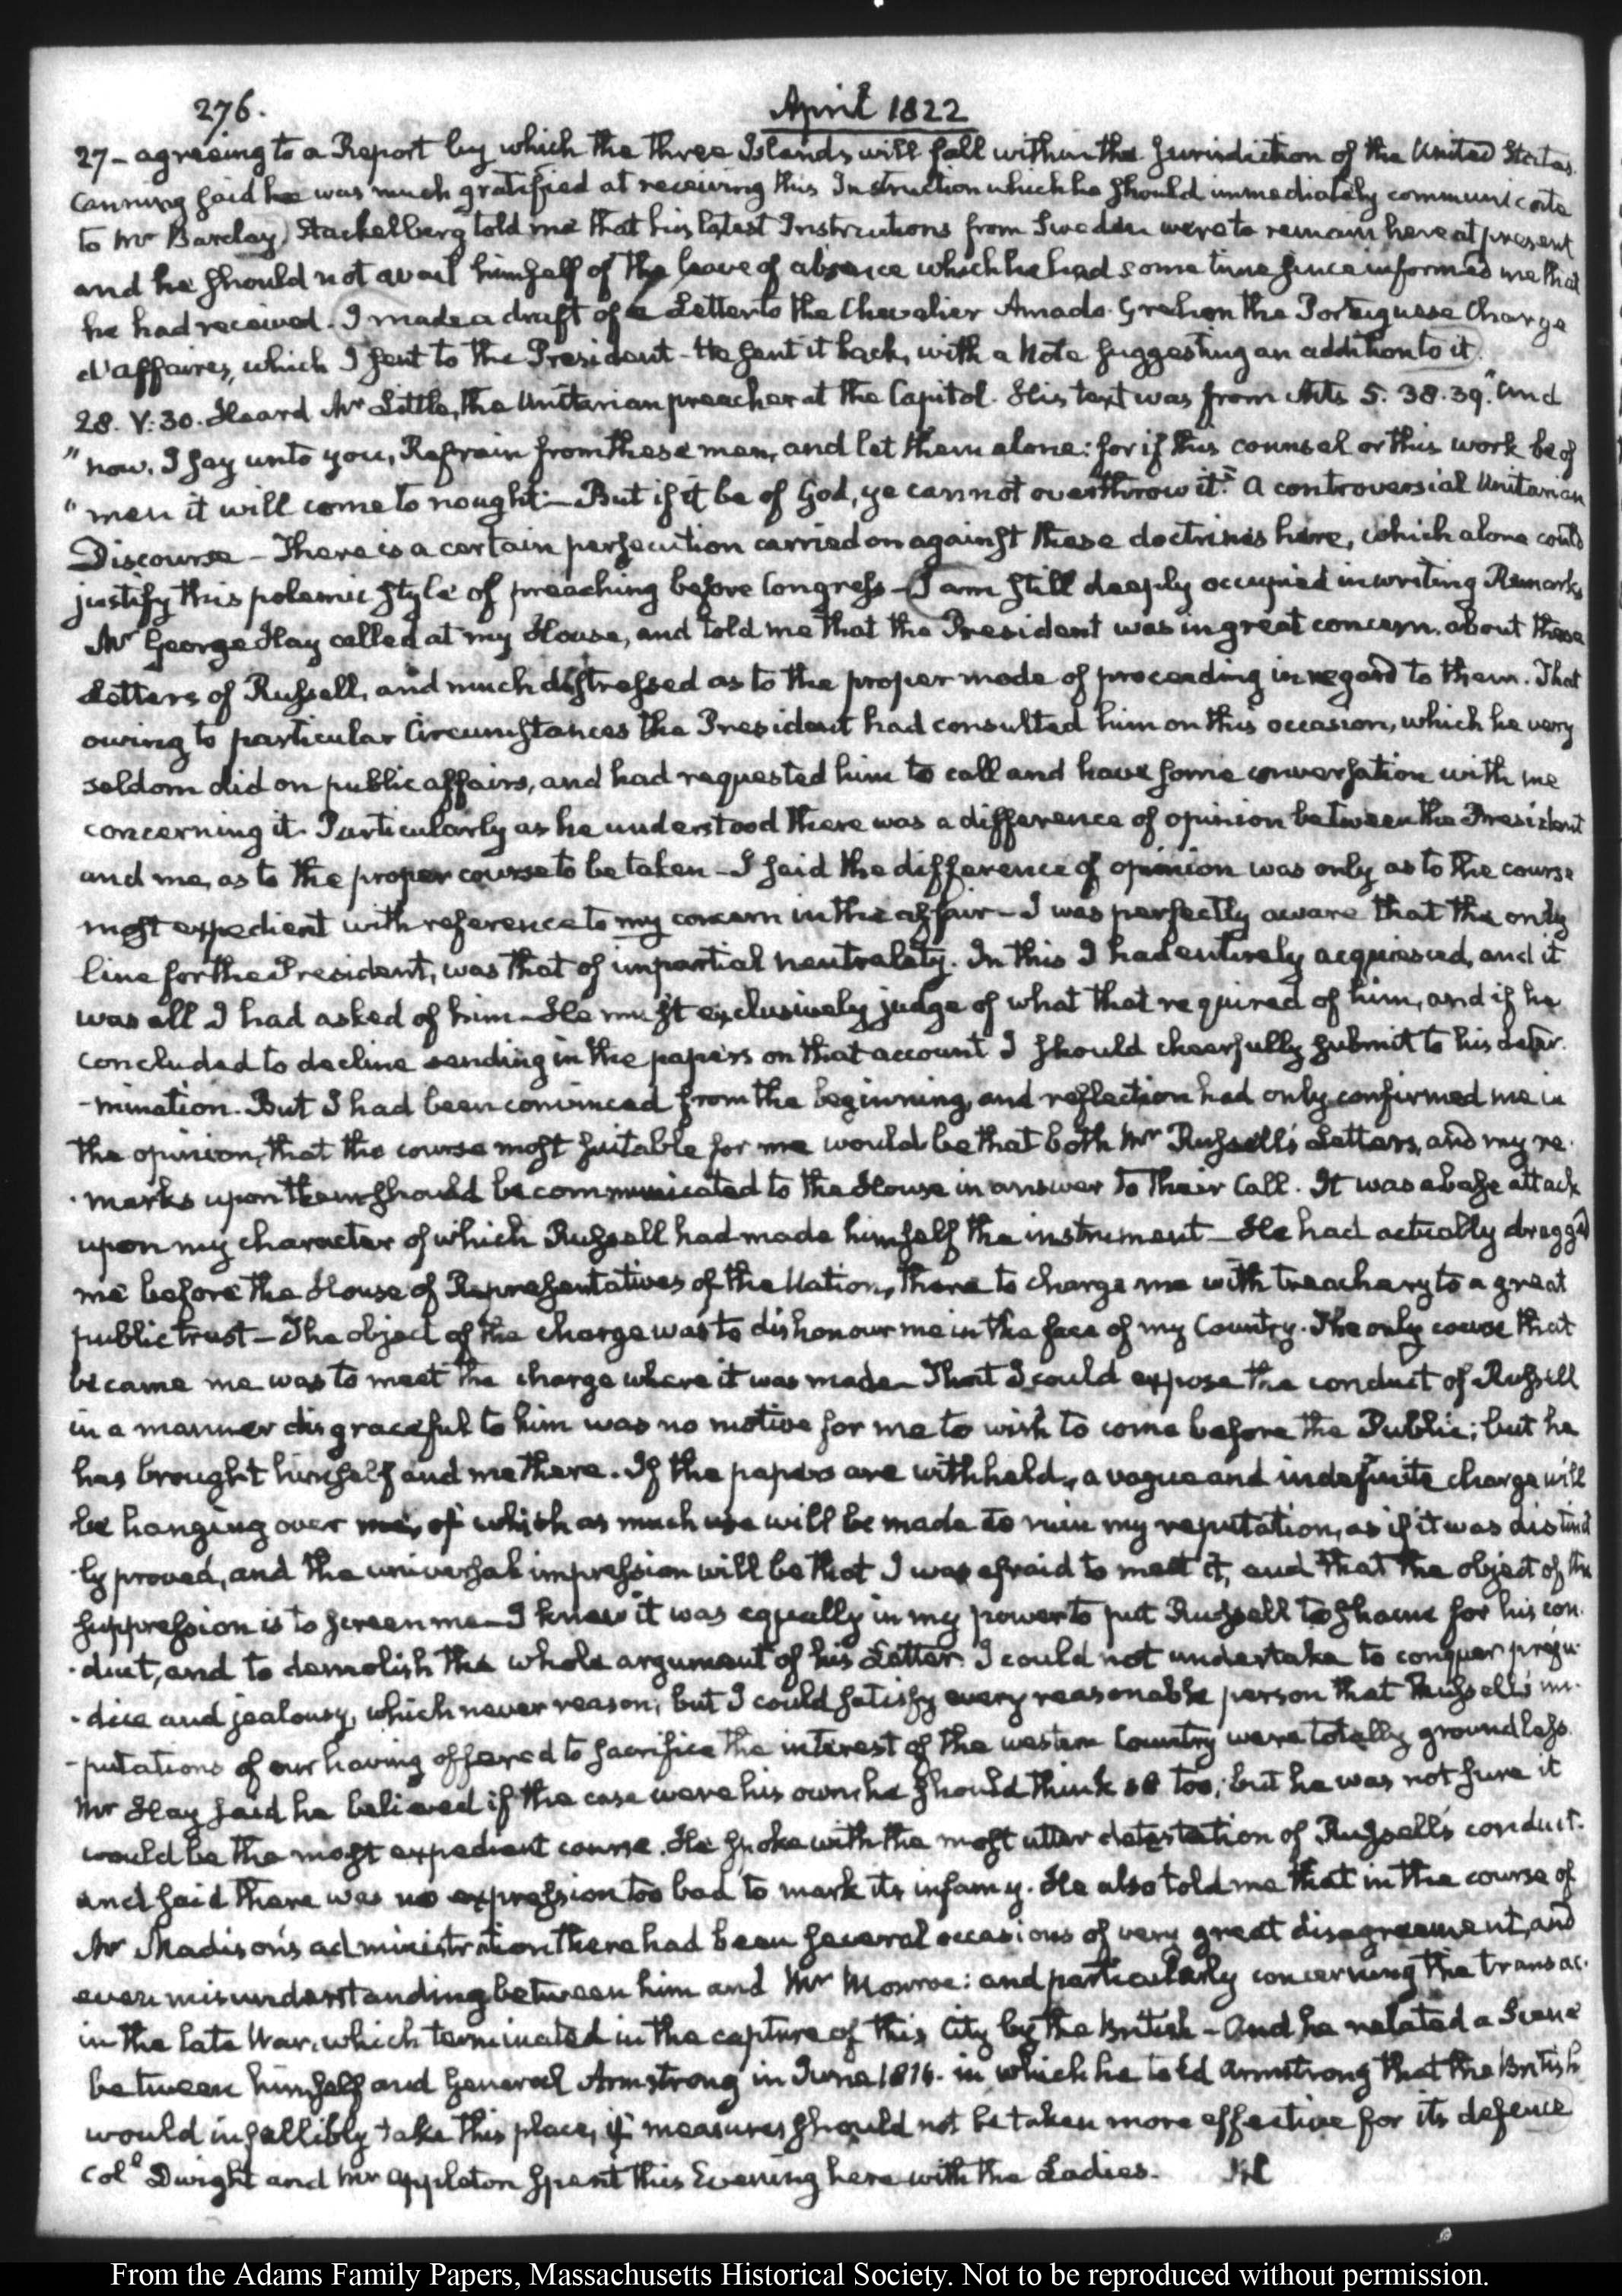 276.
April 1822
27 - agreeing to a Report by which the three Islands will fall within the Jurisdiction of the United States.
Canning said he was much gratified at receiving this Instruction which he should immediately communicate
to Mr Barclay. Stackelberg told me that his latest Instructions from Sweden were to remain here at present
and he should not avail himself of the leave of absence which he had some time since informed me that
he had received. I made a draft of a Letter to the Chevalier Amado Grehon the Portuguese Charge
d'affaires, which I sent to the President - He sent it back, with a Note suggesting an addition to it.
28. V:30. Heard Mr Little, the Unitarian preacher at the Capitol. His text was from Acts 5. 38. 39. "And
"now, I say unto you, Refrain from these men, and let them alone: for if this counsel or this work be of
"men it will come to nought:—But if it be of God, ye cannot overthrow it." A controversial Unitarian
Discourse — There is a certain persecution carried on against these doctrines here, which alone could
justify this polemic style of preaching before Congress — I am still deeply occupied in writing Remarks
Mr George Hay called at my House, and told me that the President was in great concern about these
Letters of Russell, and much distressed as to the proper mode of proceeding in regard to them. That
owing to particular Circumstances the President had consulted him on this occasion, which he very
seldom did on public affairs, and had requested him to call and have some conversation with me
concerning it. Particularly as he understood there was a difference of opinion between the President
and me, as to the proper course to be taken — I said the difference of opinion was only as to the course
most expedient with reference to my concern in the affair — I was perfectly aware that the only
line for the President, was that of impartial neutrality. In this I had entirely acquiesced, and it
was all I had asked of him — He must exclusively judge of what that required of him, and if he
concluded to decline sending in the papers on that account I should cheerfully submit to his deter-
-mination. But I had been convinced from the beginning, and reflection had only confirmed me in
the opinion, that the course most suitable for me would be that both Mr Russell's Letters, and my re-
-marks upon them should be communicated to the House in answer to their Call. It was a base attack
upon my character of which Russell had made himself the instrument — He had actually dragg'd
me before the House of Representatives of the Nation, there to charge me with treachery to a great
public trust — The object of the charge was to dishonour me in the face of my Country. The only course that
became me was to meet the charge where it was made — That I could expose the conduct of Russell
in a manner disgraceful to him was no motive for me to wish to come before the Public; but he
has brought himself and me there. If the papers are withheld, a vague and indefinite charge will
be hanging over me, of which as much use will be made to ruin my reputation, as if it was distinct
-ly proved, and the universal impression will be that I was afraid to meet it, and that the object of the
suppression is to screen me — I knew it was equally in my power to put Russell to shame for his con-
-duct, and to demolish the whole argument of his Letter I could not undertake to conquer preju-
-dice and jealousy, which never reason; but I could satisfy every reasonable person that Russell's im-
-putations of our having offered to sacrifice the interest of the western Country were totally groundless.
Mr Hay said he believed if the case were his own he should think so too; but he was not sure it
would be the most expedient course. He spoke with the most utter detestation of Russell's conduct.
and said there was no expression too bad to mark its infamy. He also told me that in the course of
Mr Madison's administration there had been several occasions of very great disagreement, and
even misunderstanding between him and Mr Monroe: and particularly concerning the transac-
in the late War, which terminated in the capture of this City by the British — And he related a Scene
between himself and General Armstrong in June 1814. in which he told Armstrong that the British
would infallibly take this place, if measures should not be taken more effective for its defence
Coll Dwight and Mr Appleton spent this Evening here with the Ladies.
From the Adams Family Papers, Massachusetts Historical Society. Not to be reproduced without permission.